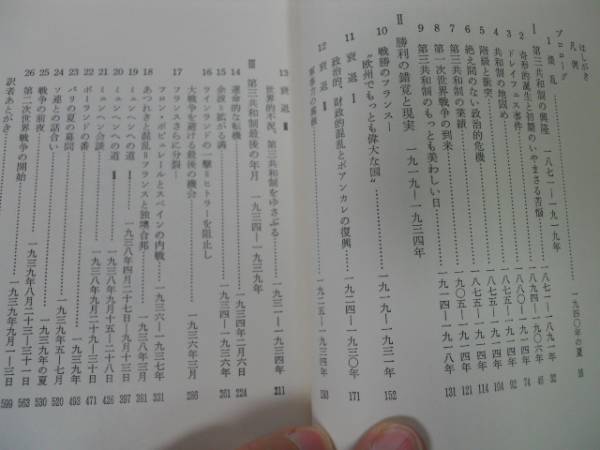 はしがき
凡例
プロローグ
1 潰乱……一九四〇年の夏 18
I 第三共和制の興隆 一八七一—一九一九年
2 奇形的誕生と初期のいやまさる苦悩……一八七一—一八九一年 32
3 ドレイフェス事件……一八九四—一九〇六年 46
4 共和制の地固め……一八八〇— 年 74
5 階級と衝突……一八七五—一九一四年 92
6 絶え間のない政治的危機……一八七五—一九一四年 104
7 第三共和制の業績……一八七五—一九一四年 114
8 第一次世界戦争の到来……一九〇五—一九一四年 121
9 第三共和制のもっとも美しい日……一九一四—一九一八年 131
II 勝利の錯覚と現実 一九一九—一九三四年
10 戦勝のフランス—
“欧州でもっとも偉大な国”……一九一九—一九三一年 152
11 衰退 I
政治的、財政的混乱とポアンカレの復興……一九二四—一九三〇年 171
12 衰退 II
……一九二五—一九三四年
13 衰退 III
世界的不況、第三共和制をゆさぶる……一九三一—一九三四年 211
III 第三共和制最後の年月 一九三四—一九三九年
14 運命的な転機……一九三四年二月六日 224
15 余波=拡がる溝……一九三四—一九三六年 261
16 ラインランドの一撃=ヒトラーを阻止し
大戦争を避ける最後の機会……一九三六年三月 286
17 フランスさらに分裂—
フロン・ポピュレールとスペインの内戦……一九三六—一九三七年 331
18 あつれきと混乱=フランスと独墺合邦……一九三八年三月 361
19 ミュンヘンへの道 I……一九三八年四月二十七日—九月十三日 397
20 ミュンヘンへの道 II……一九三八年九月十五—二十八日 426
21 ミュンヘン会談……一九三八年九月二十九—三十日 471
22 ポーランドの番……一九三九年 488
23 パリの夏の幕間……一九三九年 493
24 ソ連との話合い……一九三九年五—七月 520
25 戦争の前夜……一九三九年の夏 530
26 第二次世界戦争の開始……一九三九年八月二十三—三十一日 563
一九三九年九月一—三日 599
訳者あとがき